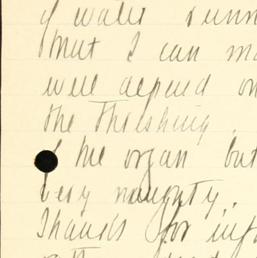 of water runn
that I can ma
well depend on
the threshing.
the organ but
very naughty.
Thanks for inf